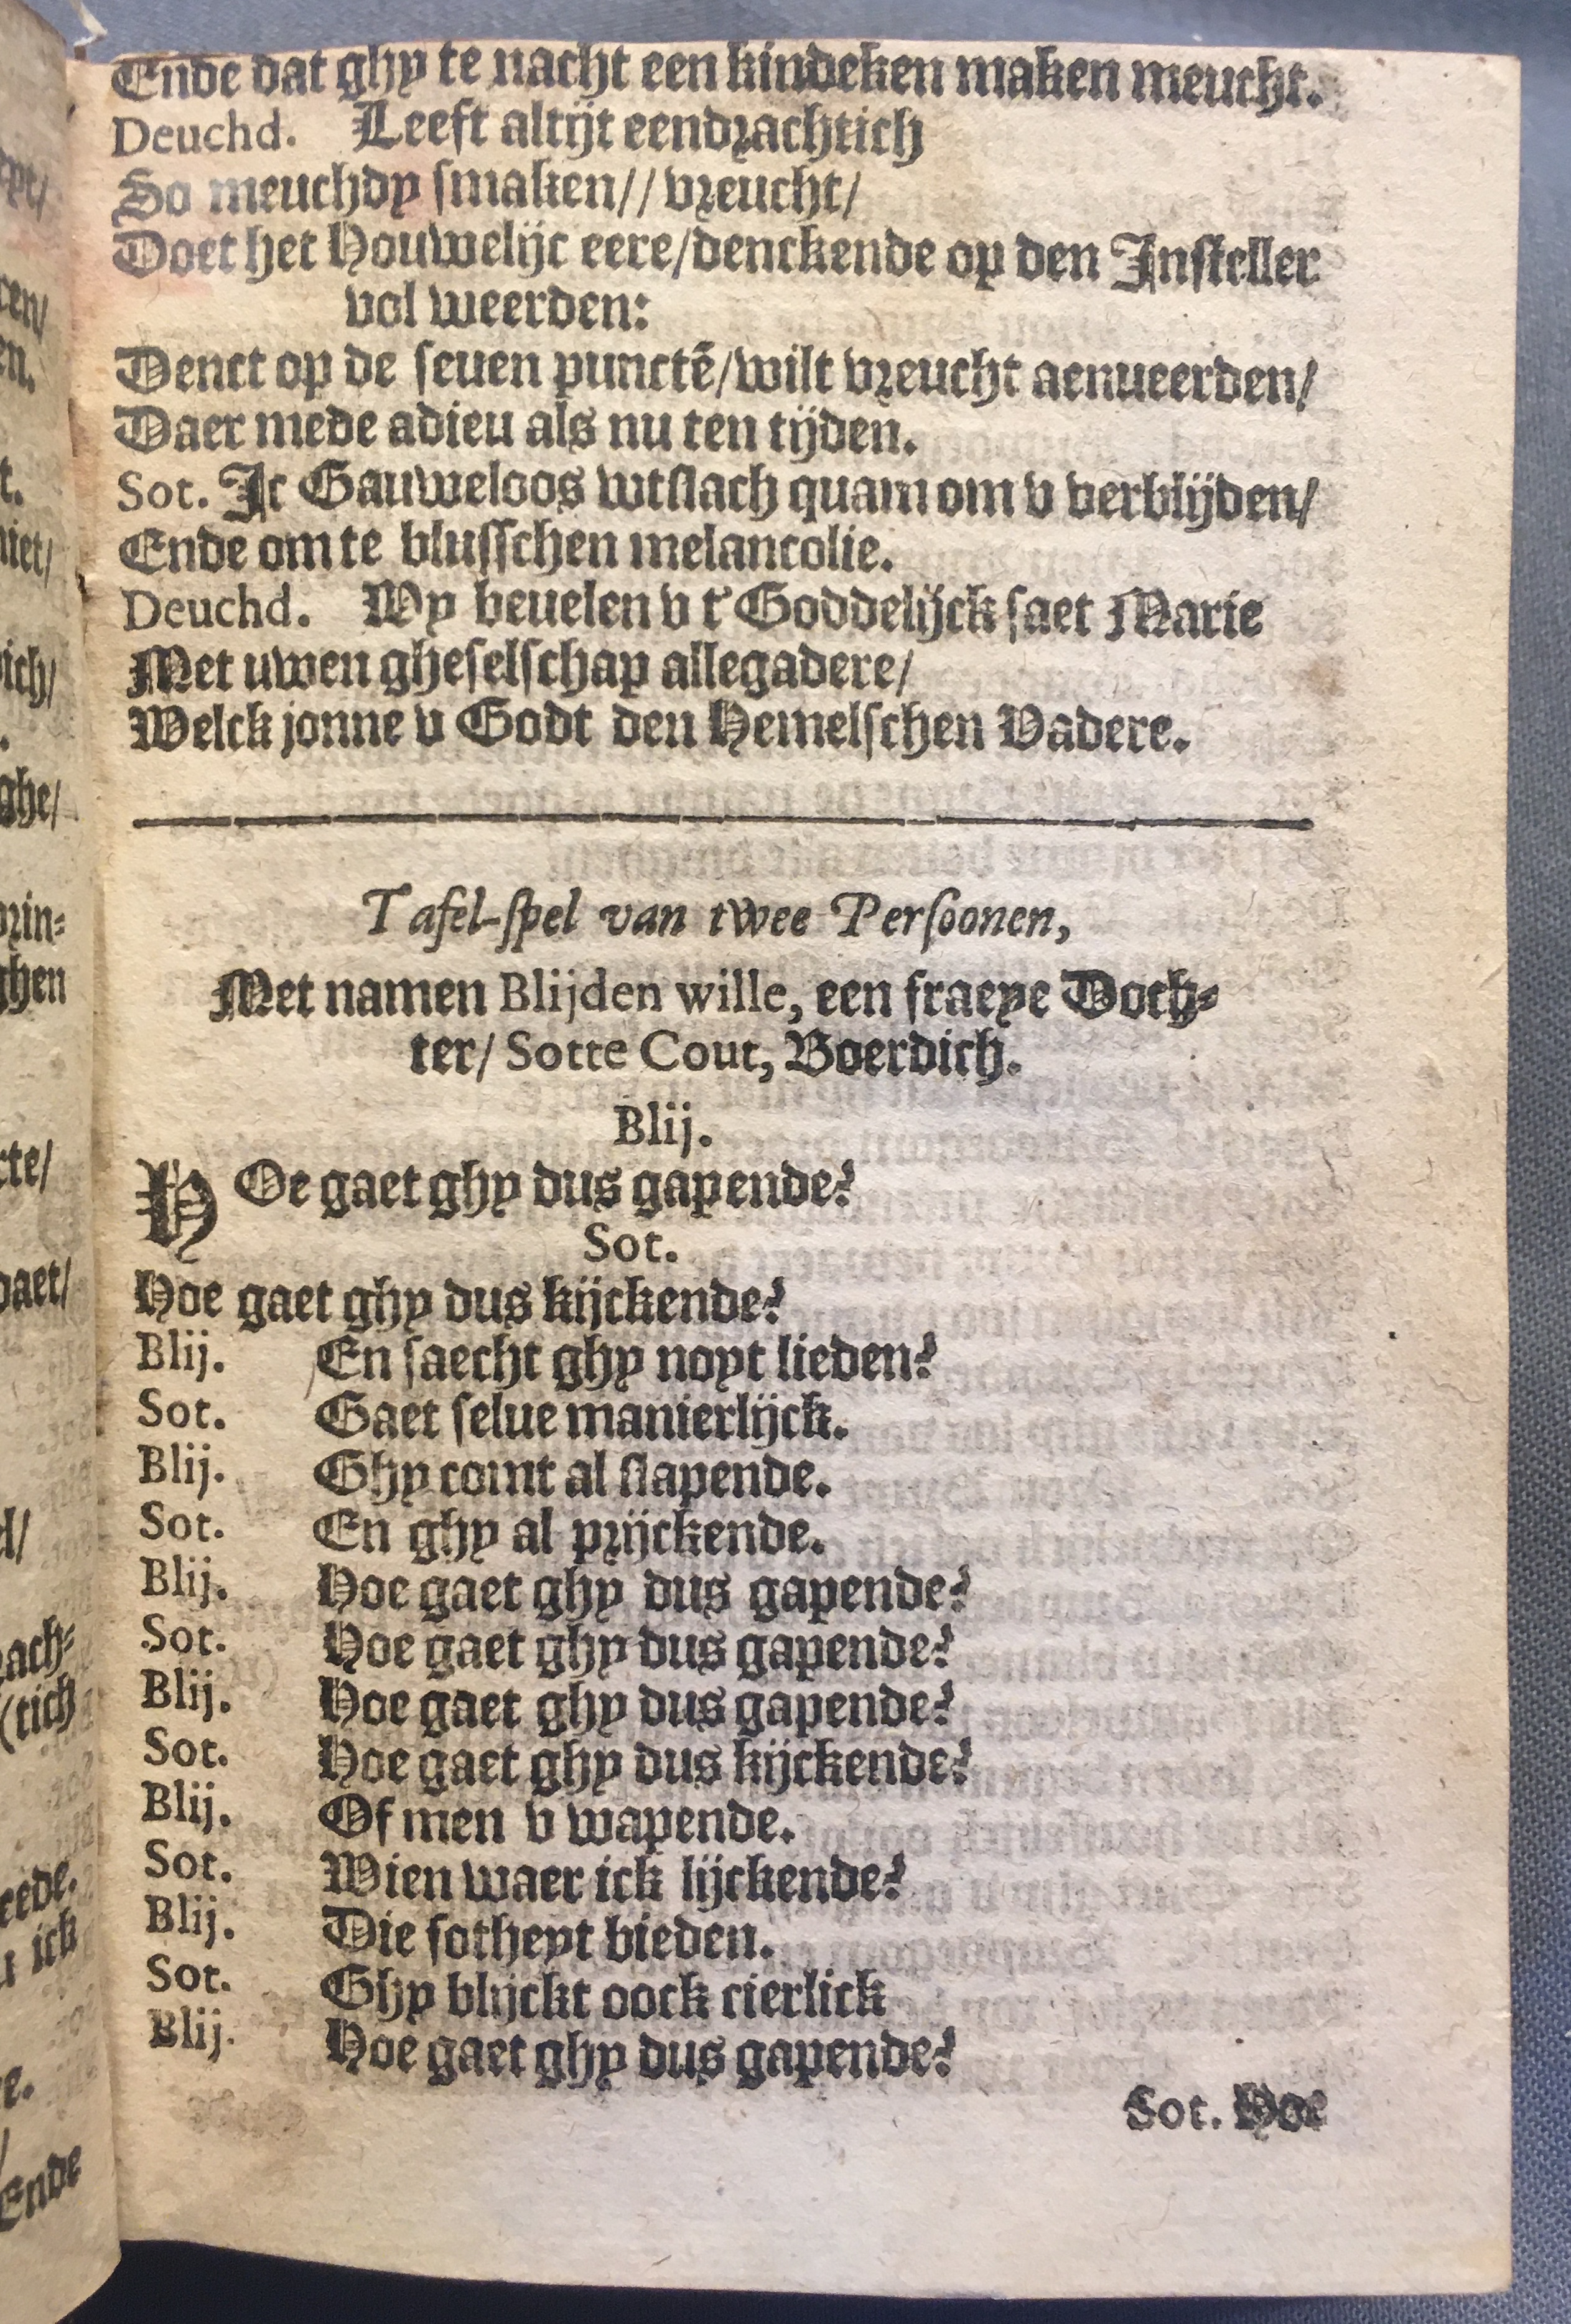 Ende dat ghy te nacht een kindeken maken meucht.
Deuchd. Leeft altijt eendrachtich
So meuchdy smaken// vreucht/
Doet het Houwelijc eere/denckende op den Insteller
vol weerden:
Denct op de seuen punctē/wilt vreucht aenueerden/
Daer mede adieu als nu ten tijden.
Sot. Ic Gauweloos wtslach quam om v verblijden/
Ende om te blusschen melancolie.
Deuchd. Wy beuelen v t'Goddelijck saet Marie
Met uwen gheselschap allegadere/
Welck jonne v Godt den Hemelschen Vadere.
Tafel-spel van twee Persoonen,
Met namen Blijden wille, een fraeye Doch-
ter/ Sotte Cout, Boerdich.
Blij.
HOe gaet ghy dus gapende?
Sot.
Hoe gaet ghy dus kijckende?
Blij. En saecht ghy noyt lieden?
Sot. Gaet selue manierlijck.
Blij. Ghy comt al slapende.
Sot. En ghy al prijckende.
Blij. Hoe gaet ghy dus gapende?
Sot. Hoe gaet ghy dus gapende?
Blij. Hoe gaet ghy dus gapende?
Sot. Hoe gaet ghy dus kijckende?
Blij. Of men v wapende.
Sot. Wien waer ick lijckende?
Blij. Die sotheyt bieden.
Sot. Ghy blijckt oock cierlick
Blij. Hoe gaet ghy dus gapende?
Sot. Hoe